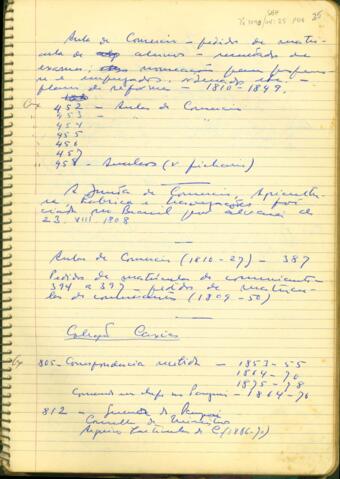 SBH
25
Aula de Comercio - pedido de matrí-
cula de alunos - resultado de
exames, nomeação para profess
e empregados, ordenado
plano de reforma - 1810-1849.
Cx
452 - Aulas de Comercio
" 453 -
" 454
" 455
" 456
" 457
" 458 - Auxiliares (v fichario)
A Junta de Comercio, Agricultu-
ra, Fabrica e Navegações foi
criada no Brasil por alvará de
23. VIII. 1808
Aulas de Comercio (1810-29) - 387
Pedidos de matrículas de comerciantes
394 a 397 - pedidos de matrícu-
las de comerciantes (1809-50)
Coleção Caxias
Cx 805 - Correspondencia recebida - 1853-55
1864-70
1875-78
Comando em chefe no Paraguai - 1864-70
812 - Guerra do Paraguai
Conselho de Ministros
Arquivo Particular de C (1866-7)